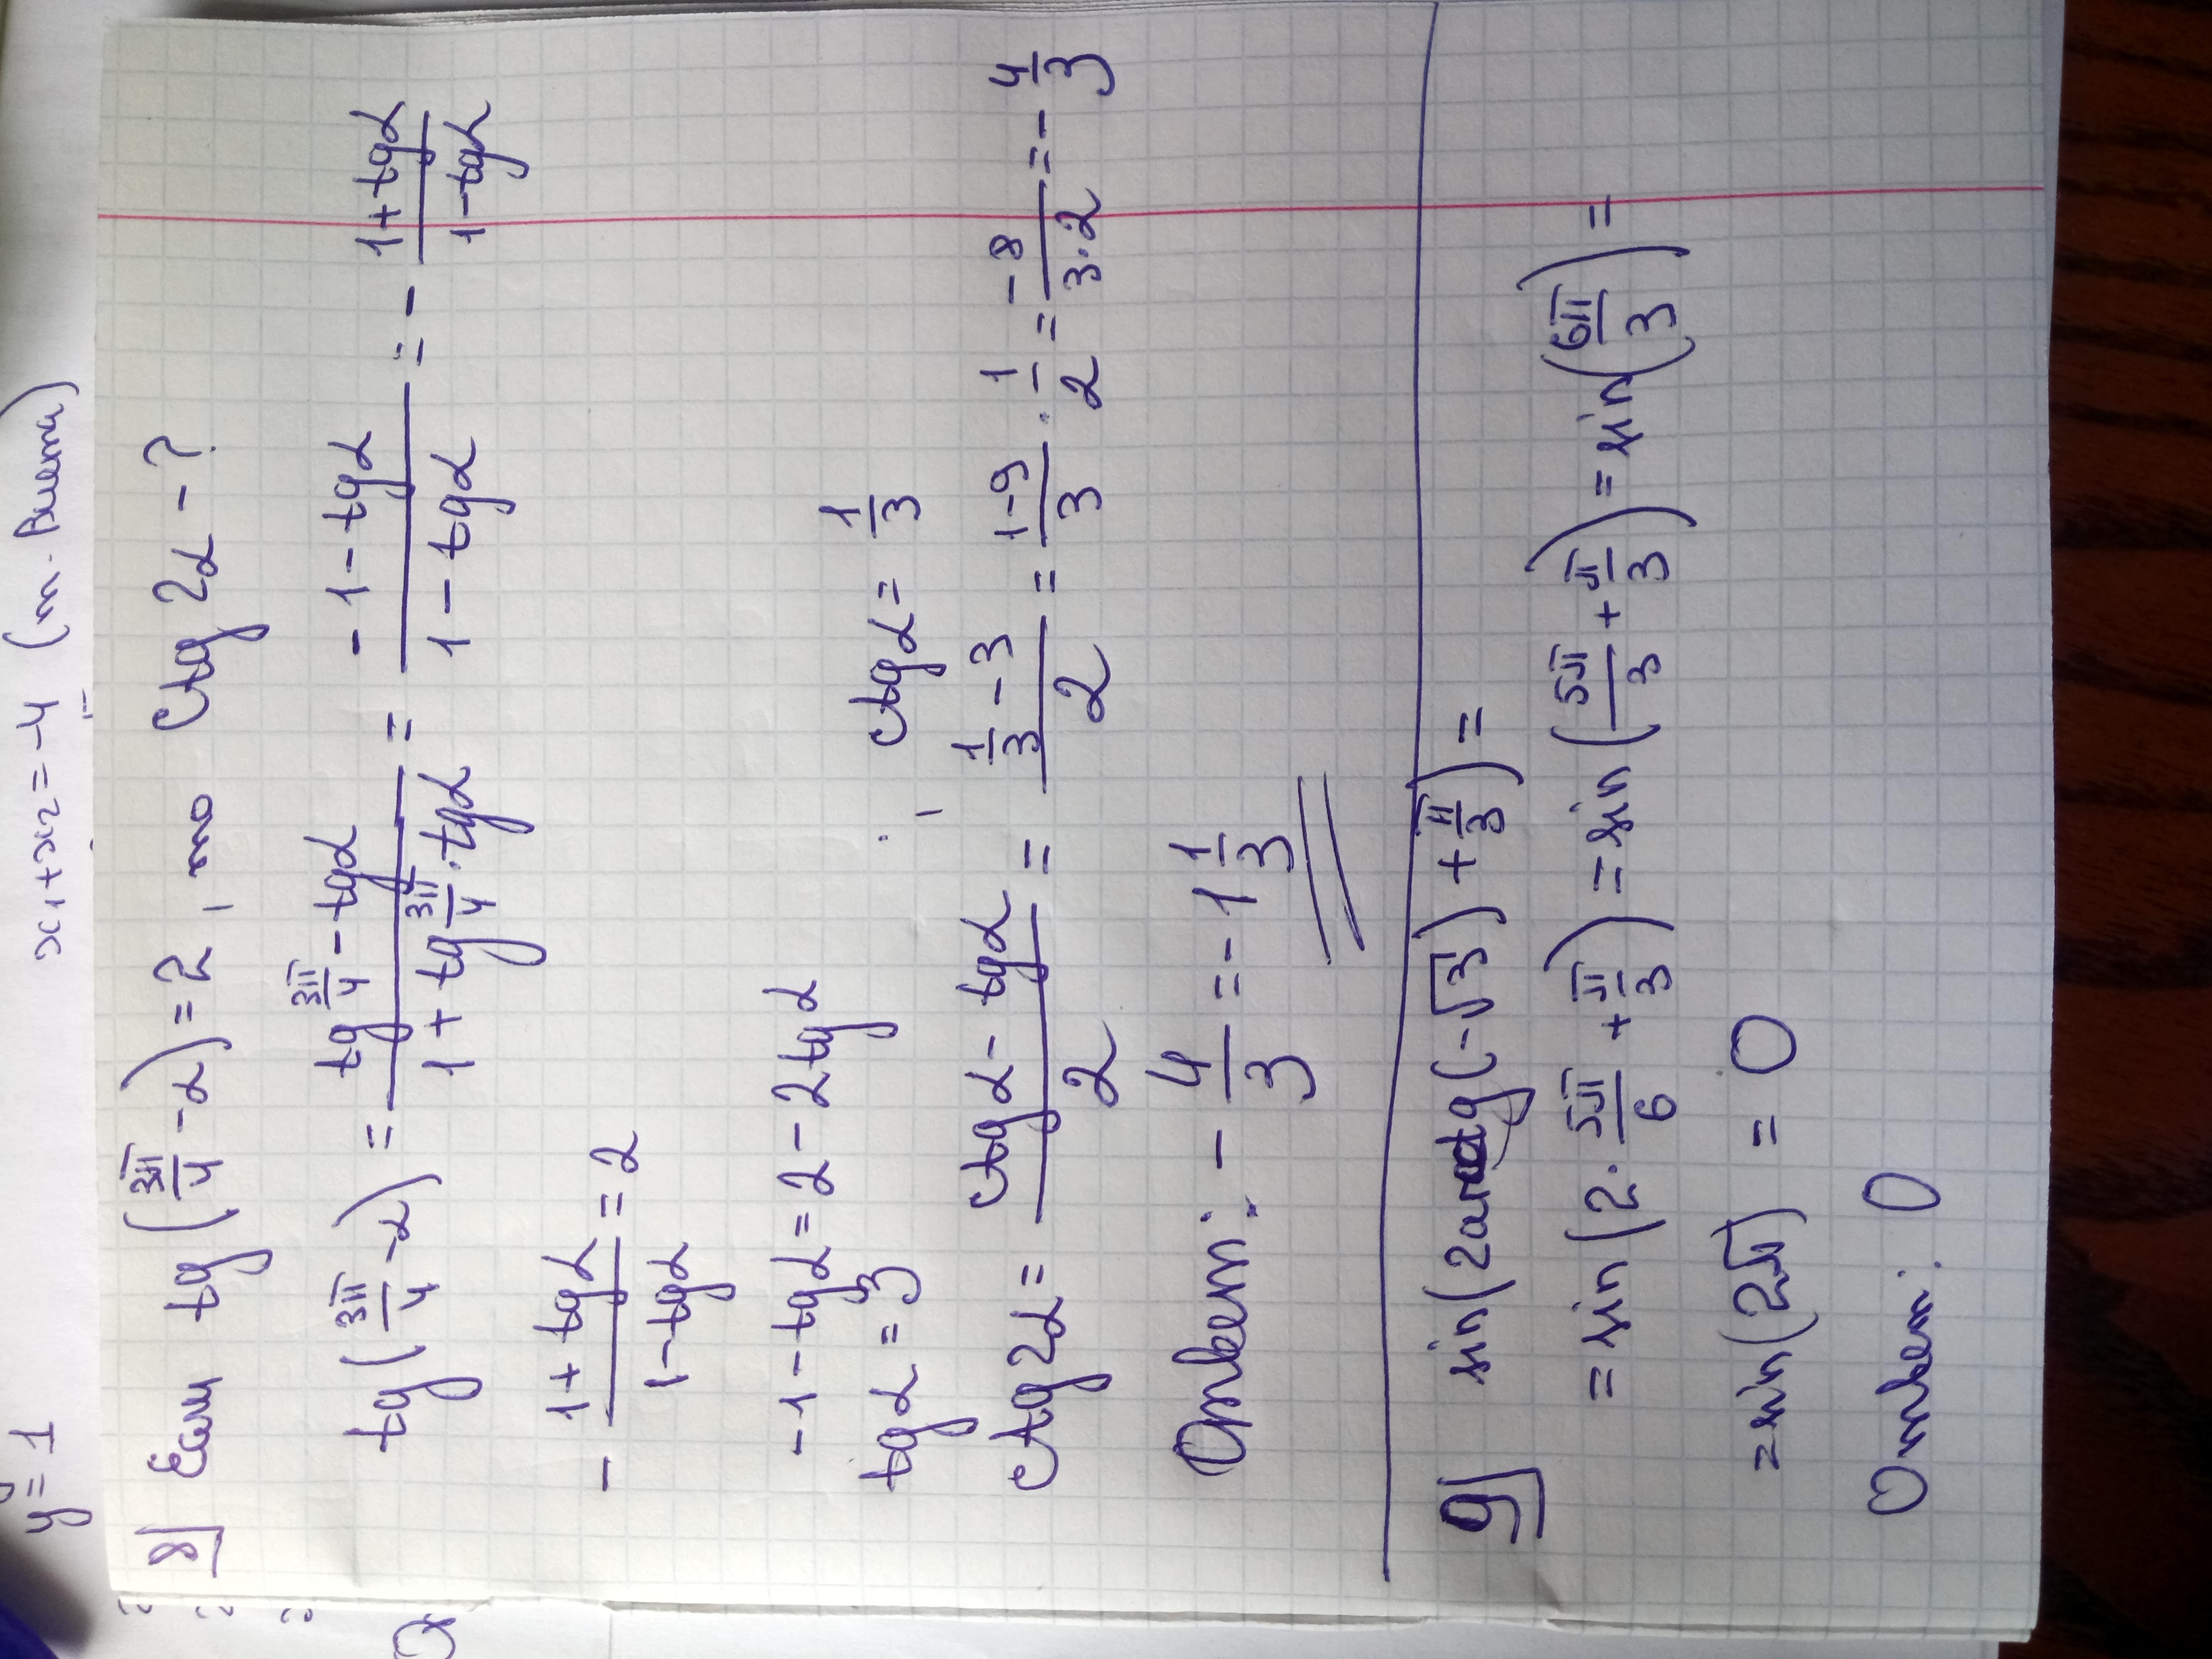 y = 1
x₁ + x₂ = -4 (т. Виета)
8] Если tg(3π/4 - α) = 2, то ctg 2α - ?
tg(3π/4 - α) = (tg 3π/4 - tgα)/(1 + tg 3π/4 · tgα) = (-1 - tgα)/(1 - tgα) = - (1 + tgα)/(1 - tgα)
- (1 + tgα)/(1 - tgα) = 2
-1 - tgα = 2 - 2tgα
tgα = 3 ; ctgα = 1/3
ctg 2α = (ctgα - tgα)/2 = (1/3 - 3)/2 = (1-9)/3 · 1/2 = -8/(3·2) = -4/3
Ответ: - 4/3 = -1 1/3
9] sin(2arctg(-√3) + π/3) =
= sin(2 · 5π/6 + π/3) = sin(5π/3 + π/3) = sin(6π/3) =
= sin(2π) = 0
Ответ: 0